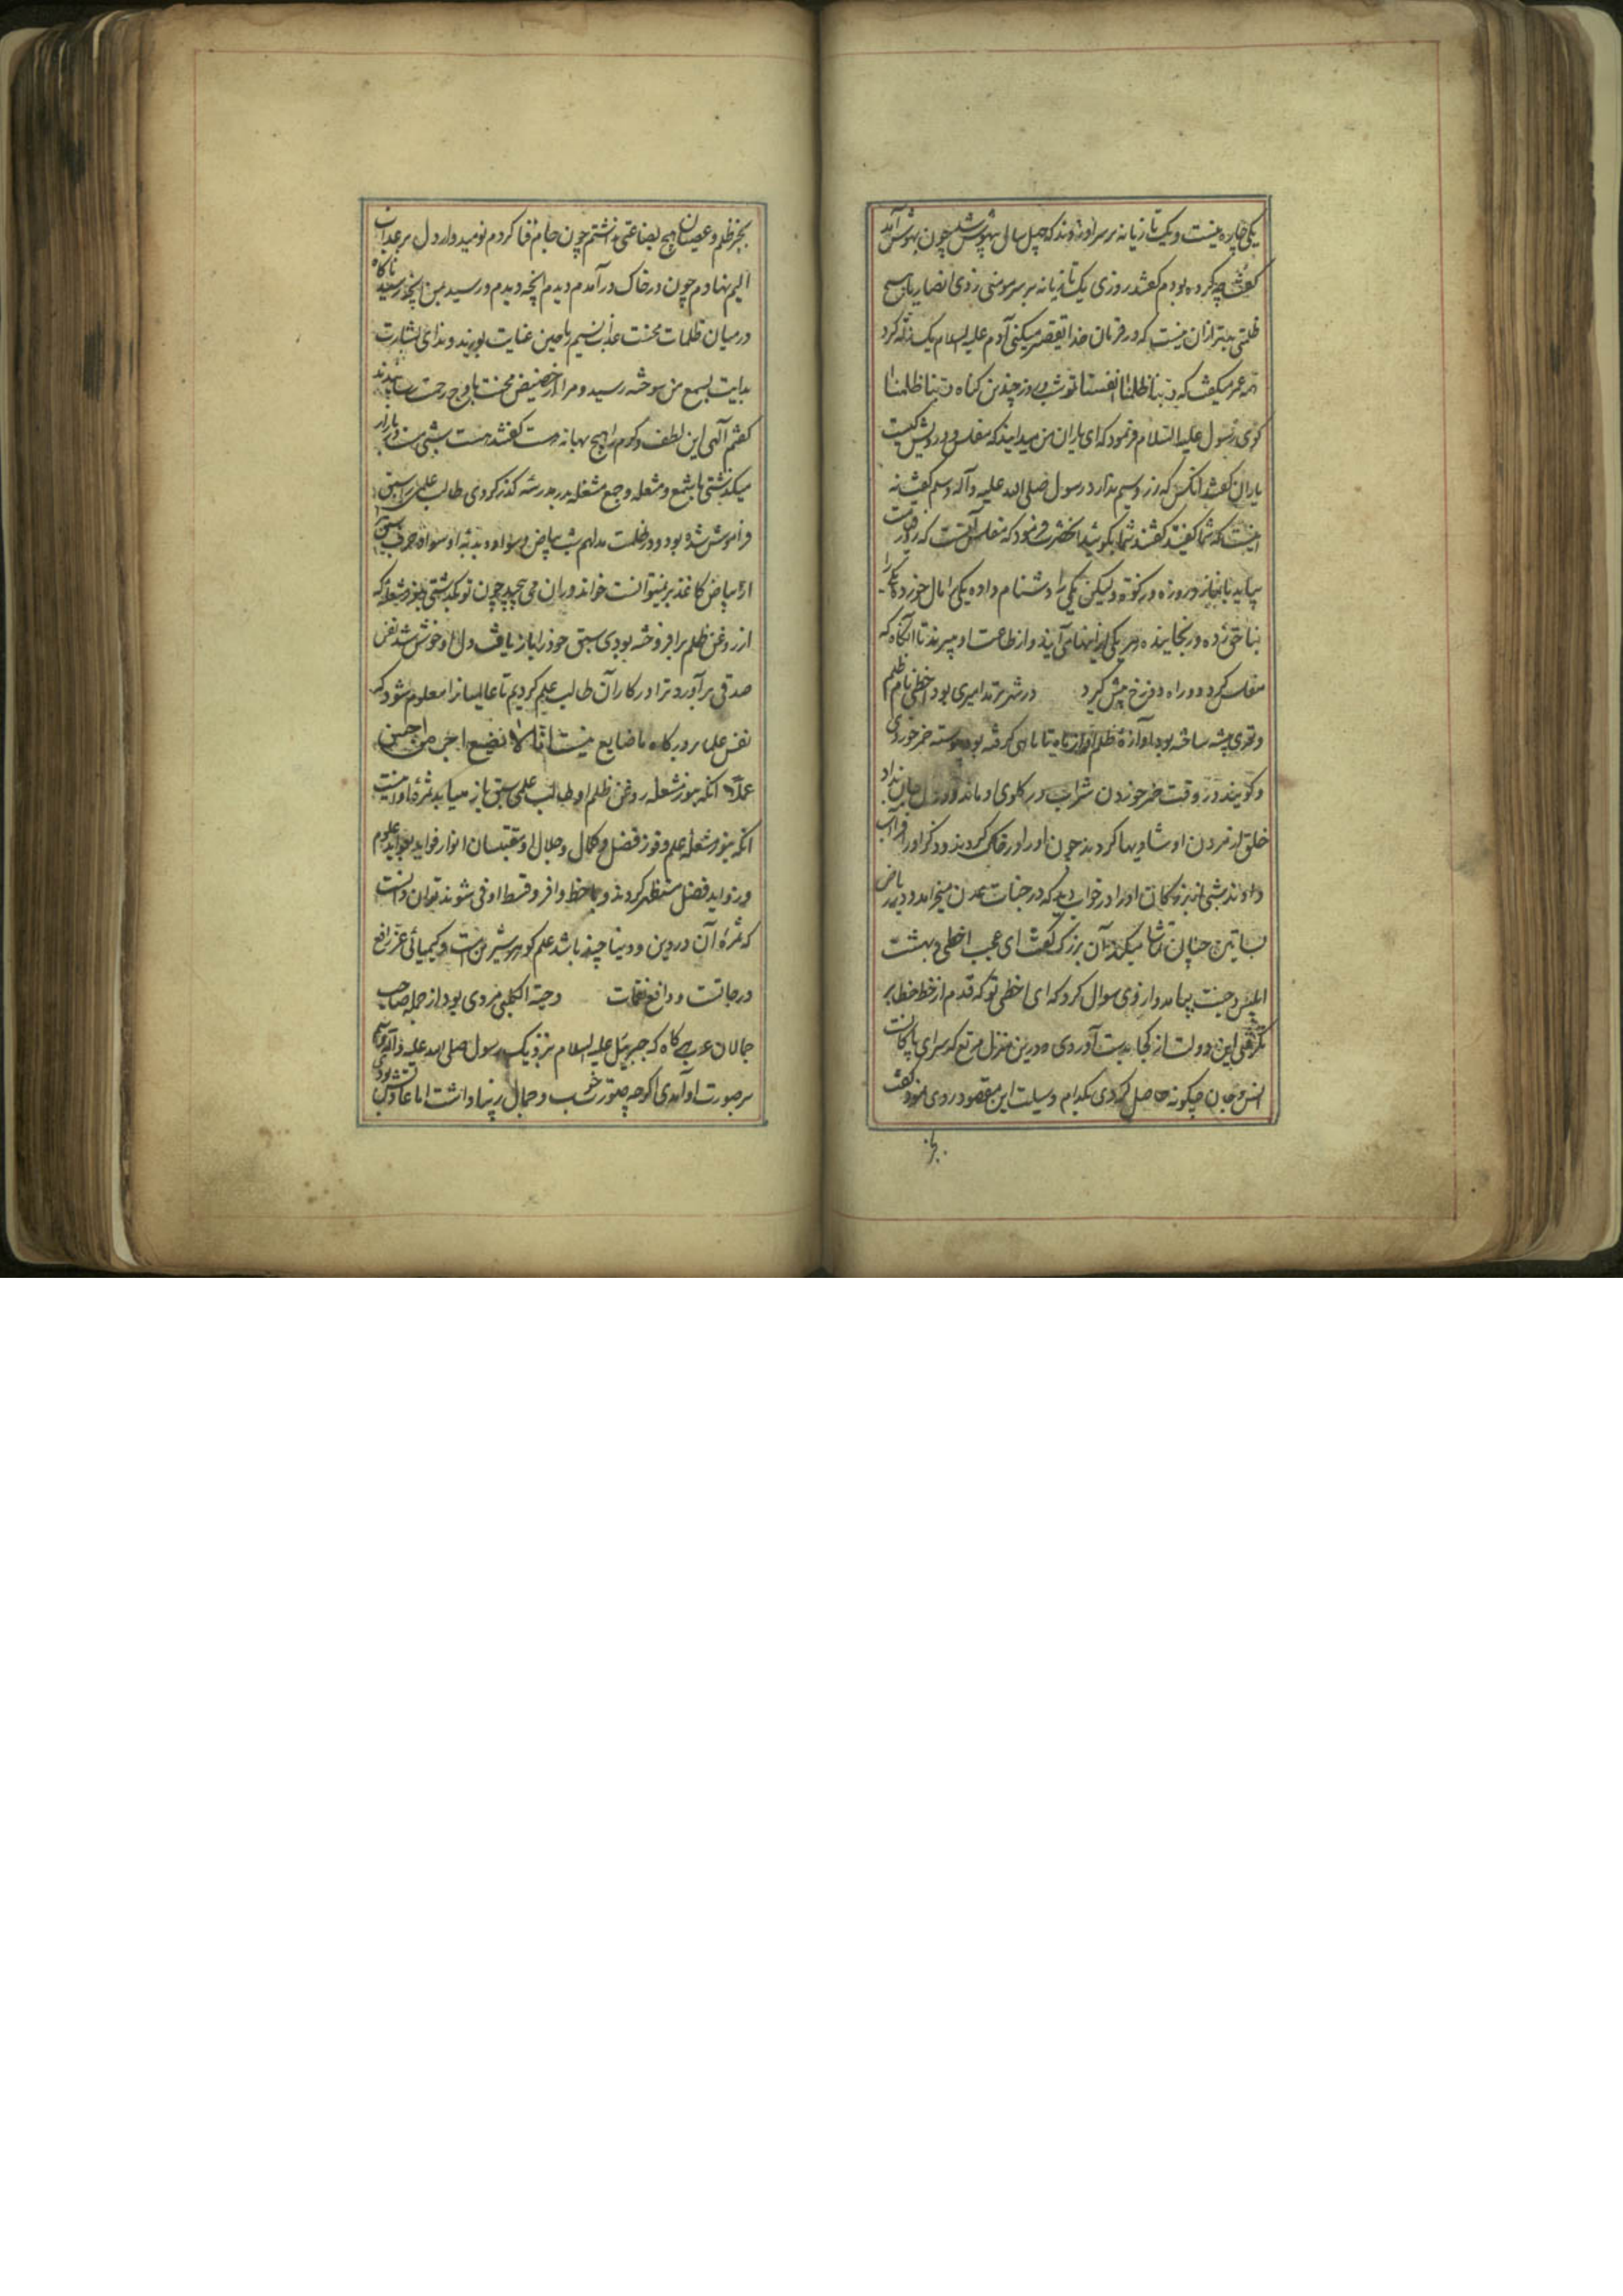 یکی چاره نیست و یک تازیانه بر سر او زدند که چهل سال بیهوش شد چون بهوش آمد
گفت چه کرده بودم گفتند روزی یک تازیانه بر سر مومنی زدی انصار یا هیچ
ظلمتی بدتر از آن نیست که در فرمان خدا تقصیر میکنی آدم علیه السلام یک زله کرد
همه عمر میگفت که ربنا ظلمنا انفسنا تو شب و روز چندین گناه ربنا ظلمنا
گوی رسول علیه السلام فرمود که ای یاران من میدانید که مفلس و درویش کیست
یاران گفتند آنکس که زر و سیم ندارد رسول صلی الله علیه وآله وسلم گفت نه
اینست که شما گفتید گفتند شما بگوئید آنحضرت فرمود که مفلس آنست که روز قیامت
بیاید با نماز و روزه و زکوة و لیکن یکی را دشنام داده یکی را مال خورده یکی را
بناحق زده و رنجانیده هر یکی از اینها می آیند و از طاعت او میبرند تا آنگاه که
مفلس گردد و راه دوزخ پیش گیرد در شهر ترمد امیری بود اخطی نام ظلم
و تعدی پیشه ساخته بود آوازهٔ ظلم او از ماه تا ماهی گرفته بود پیوسته خمر خوردی
و گویند در وقت خمر خوردن شراب در گلوی او ماند و در حال جان بداد
خلق از مردن او شادیها کردند چون او را در خاک کردند و ذکر او را فراآب
دادند شبی از بزرگان او را در خواب دید که در جنات عدن میخرامد و در ریاض
بساتین جنان تماشا میکند آن بزرگ گفت ای عجب اخطی و بهشت
ابلیس و جنت پیامد و از وی سوال کرد که ای اخطی تو که قدم از خط خطا بر
نگرفتی این دولت از کجا بدست آوردی و درین منزل مرتع که سرای پاکانست
انس و جان چگونه حاصل کردی بکدام وسیلت این مقصود روی نمود گفت
بجز
بجز ظلم و عصیان هیچ بضاعتی نداشتم چون جام فنا کردم نومیدوار دل بر عذاب
الیم نهادم چون در خاک در آمدم دیدم آنچه دیدم و رسید بمن آنچه رسید ناگاه
در میان ظلمات محنت عذاب نسیم یاحین عنایت بوزید و ندای بشارت
بدایت بسمع من سوخته رسید و مرا از حضیض محنت باوج رحمت رسانیدند
گفتم آلهی این لطف و کرم را هیچ بهانه هست گفتند هست شبی مست در بازار
میگذشتی با شمع و مشعله و جمع مشغله بدر مدرسه گذر کردی طالب علمی را سبق
فراموش شده بود و در ظلمت مدلهم شب بیاض و سواد دیدهٔ او سواد حرف
از بیاض کاغذ بر نمیتوانست خواند و ران می پیچید چون تو بگذشتی بنور مشعله که
از روغن ظلم بر افروخته بودی سبق خود را باز یافت دل او خوش شد نفس
صدقی بر آورد ترا در کار آن طالب علم کردیم تا عالمیان را معلوم شود که
نفس علما بر درگاه ما ضایع نیست انا لا نضیع اجر من احسن
عملا آنکه بنور مشعله روغن ظلم او طالب علمی سبق باز مییابد ثمرهٔ او اینست
آنکه بنور مشعله علم و فوز فضل و کمال و جلال او مقتبسان انوار فواید بعواید علوم
و زواید فضل مستظهر گردند و با حظ وافر و قسط اوفی شوند توان دانست
که ثمرهٔ آن در دین و دنیا چند باشد علم گوهر شیرینست و کیمیائی عزیز رافع
درجاتست و دافع نقمات دحیة الکلبی مردی بود از جمله صاحب
جمالان عرب هر گاه که جبرئیل علیه السلام نزدیک رسول صلی الله علیه وآله آمدی
بر صورت او آمدی اگرچه صورت خوب و جمال زیبا داشت اما عاقوش بودی